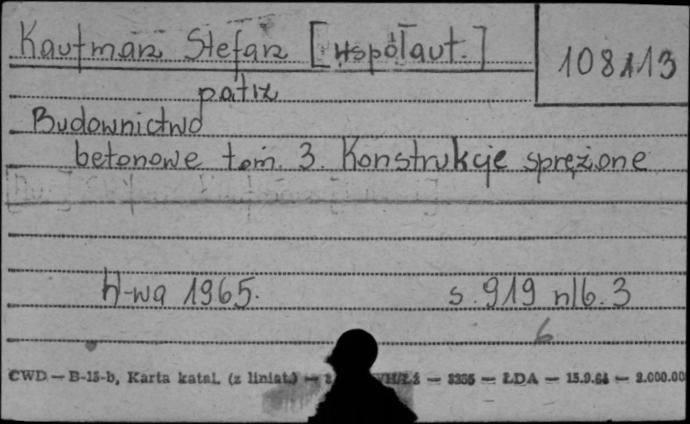 Kaufman Stefan [współaut.]
108113
patrz
Budownictwo
betonowe tom. 3. Konstrukcje sprężone
W-wa 1965. s. 919 nlb. 3
6
CWD — B-15-b, Karta katal. (z liniat.) — — 3355 — ŁDA — 15.9.64 — 2.000.00